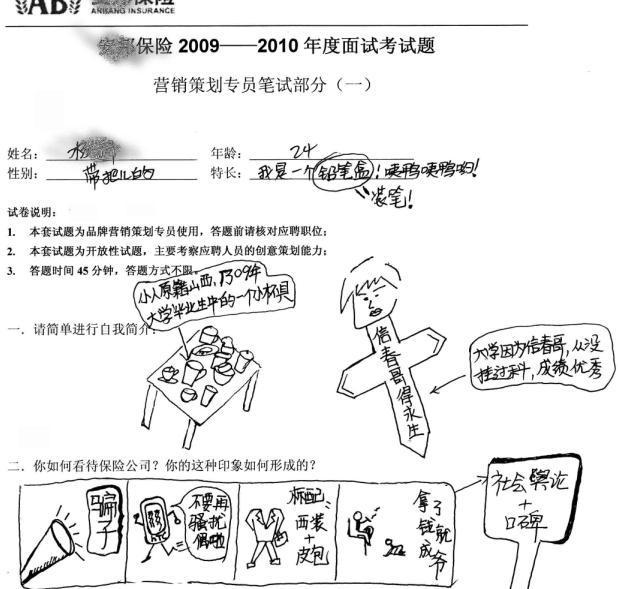 ANBANG INSURANCE
安邦保险 2009——2010 年度面试考试题
营销策划专员笔试部分（一）
姓名： 杨
年龄： 24
性别： 带把儿的
特长： 我是一个铅笔盒！咦鸭咦鸭哟！
装笔！
试卷说明：
1. 本套试题为品牌营销策划专员使用，答题前请核对应聘职位；
2. 本套试题为开放性试题，主要考察应聘人员的创意策划能力；
3. 答题时间 45 分钟，答题方式不限。
小人原籍山西，
大学毕业生中的一个小杯具
一．请简单进行自我简介：
信春哥得永生
大学因为信春哥，从没
挂过科，成绩优秀
二．你如何看待保险公司？你的这种印象如何形成的？
骗子
不要再
骚扰
俺啦
标配：
西装
+
皮包
拿了
钱就
成爷
社会舆论
+
口碑